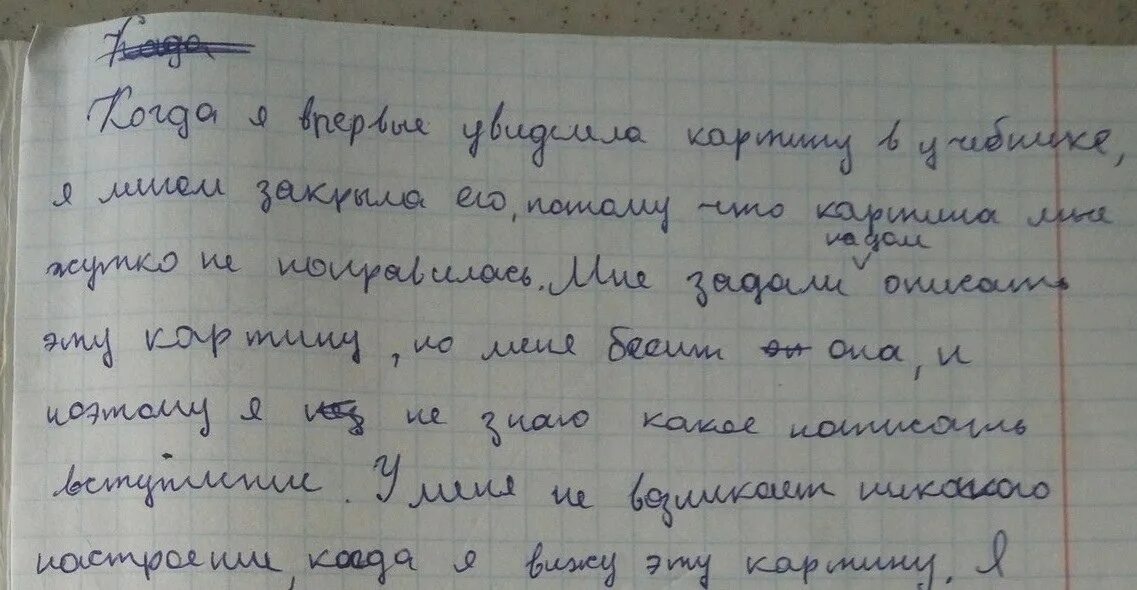 Када
Когда я впервые увидела картину в учебнике,
я мигом закрыла его, потому что картина мне
жутко не понравилась. Мне задали на дом описать
эту картину, но меня бесит он она, и
поэтому я не знаю какое написать
вступление. У меня не возникает никакого
настроение, когда я вижу эту картину. Я